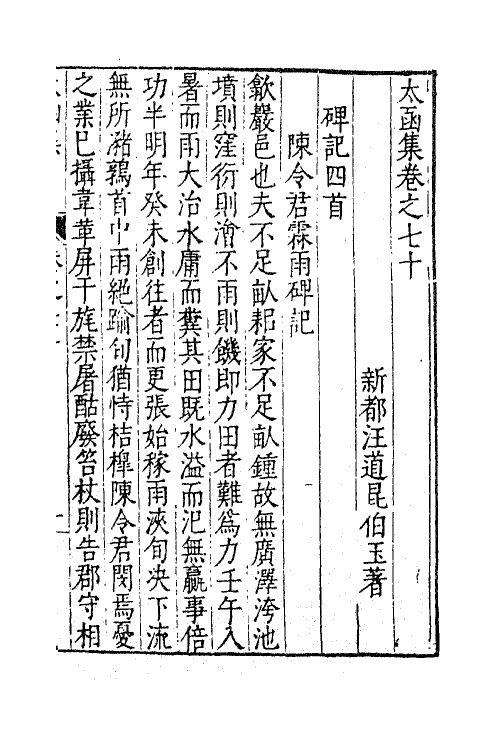 太函集卷之七十
新都汪道昆伯玉著
碑記四首
陳令君霖雨碑記
歙嚴邑也夫不足畝耜家不足畝鍾故無廣澤洿池
墳則窪衍則澮不雨則饑即力田者難爲力壬午入
暑而雨大治水庸而糞其田既水溢而汜無贏事倍
功半明年癸未創往者而更張始稼雨浹旬決下流
無所瀦鶉首中雨絕踰旬猶恃桔槔陳令君閔焉憂
之業已攝韋葦屏干旄禁屠酤廢笞杖則告郡守相